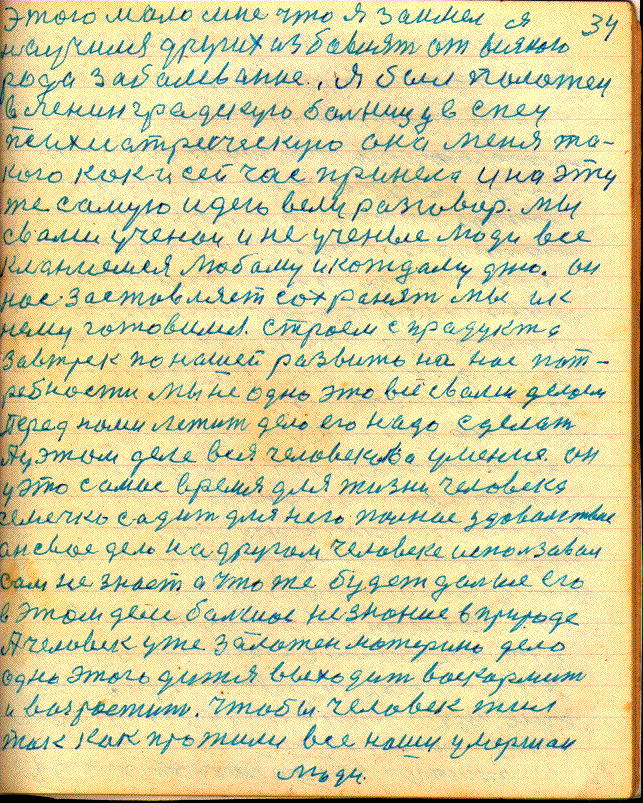 34
Этого мало мне что я заннел я
научился других избавлят от всякого
рода заболевание, я был положен
в Ленинградскую болницу в спец
психиатрическую она меня та-
кого как и сейчас принела и на эту
же самую идею вели разговор. Мы
свами ученои и не ученые люди все
кланиемся любому и кождому дню. он
нас заставляет сохранят мы ик
нему готовимся. Строем спрадукта
завтрек по нашей развито на нас пот-
ребности мы не одно это всё свами делоем
Перед нами летит дело его надо сделат
А уэтом деле вся человекова умение. он
уэто самое время для жизни человека
семечко садит для него полное здоволствие
ансвое дело на другом человеке исползавал
сам не знает а что же будет далше его
в этом деле балшое незнание вприроде
А человек уже заложен материно дело
одно этого дитя выходит воскармит
и возростит. Чтобы человек жил
так как прожили все наши умершаи
люди.